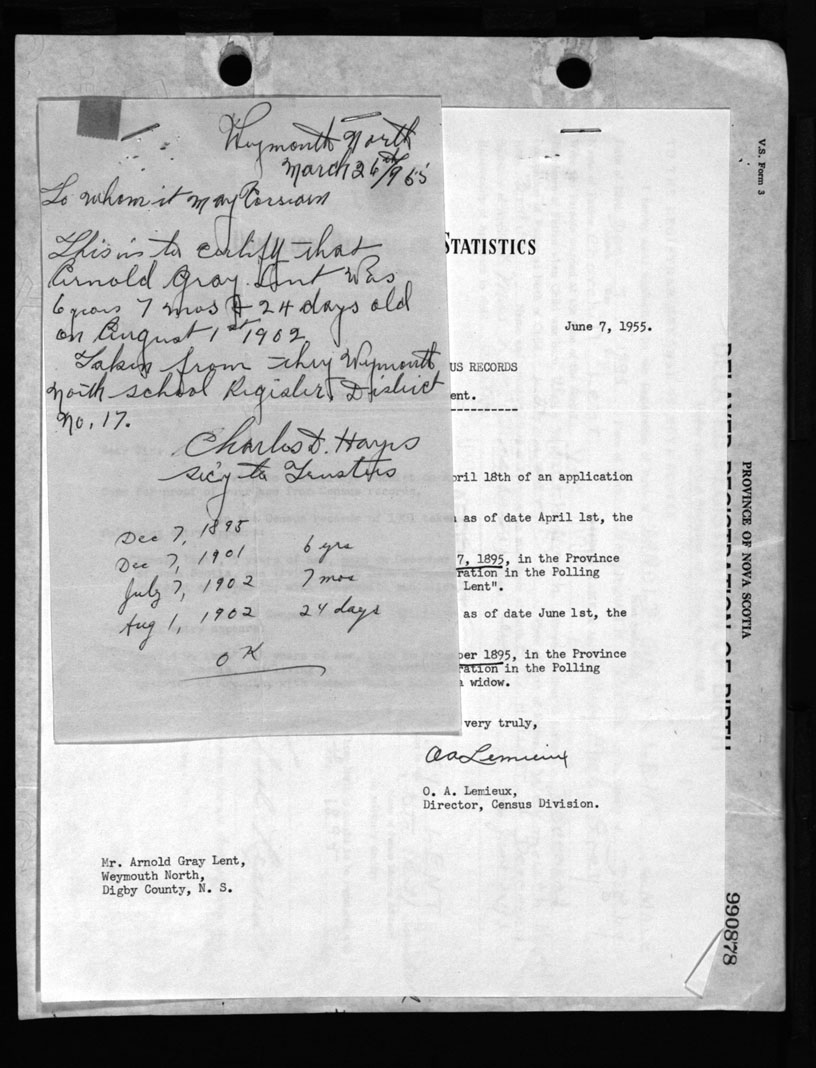 Weymouth North
March 26th/1955
To whom it may Conscern
This is to certify that
Arnold Gray Lent was
6 years 7 mos & 24 days old
on August 1st 1902
Taken from they Weymouth
North school Register, District
No, 17.
Charles D. Hayes
Sec'y to Trustees
Dec 7, 1895
Dec 7, 1901 6 yrs
July 7, 1902 7 mos
Aug 1, 1902 24 days
OK
STATISTICS
June 7, 1955.
US RECORDS
ent.
pril 18th of an application
as of date April 1st, the
7, 1895, in the Province
ration in the Polling
Lent".
as of date June 1st, the
ber 1895, in the Province
ration in the Polling
a widow.
very truly,
OALemieux
O. A. Lemieux,
Director, Census Division.
Mr. Arnold Gray Lent,
Weymouth North,
Digby County, N. S.
V.S. Form 3
PROVINCE OF NOVA SCOTIA
DELAYED REGISTRATION OF BIRTH
990878